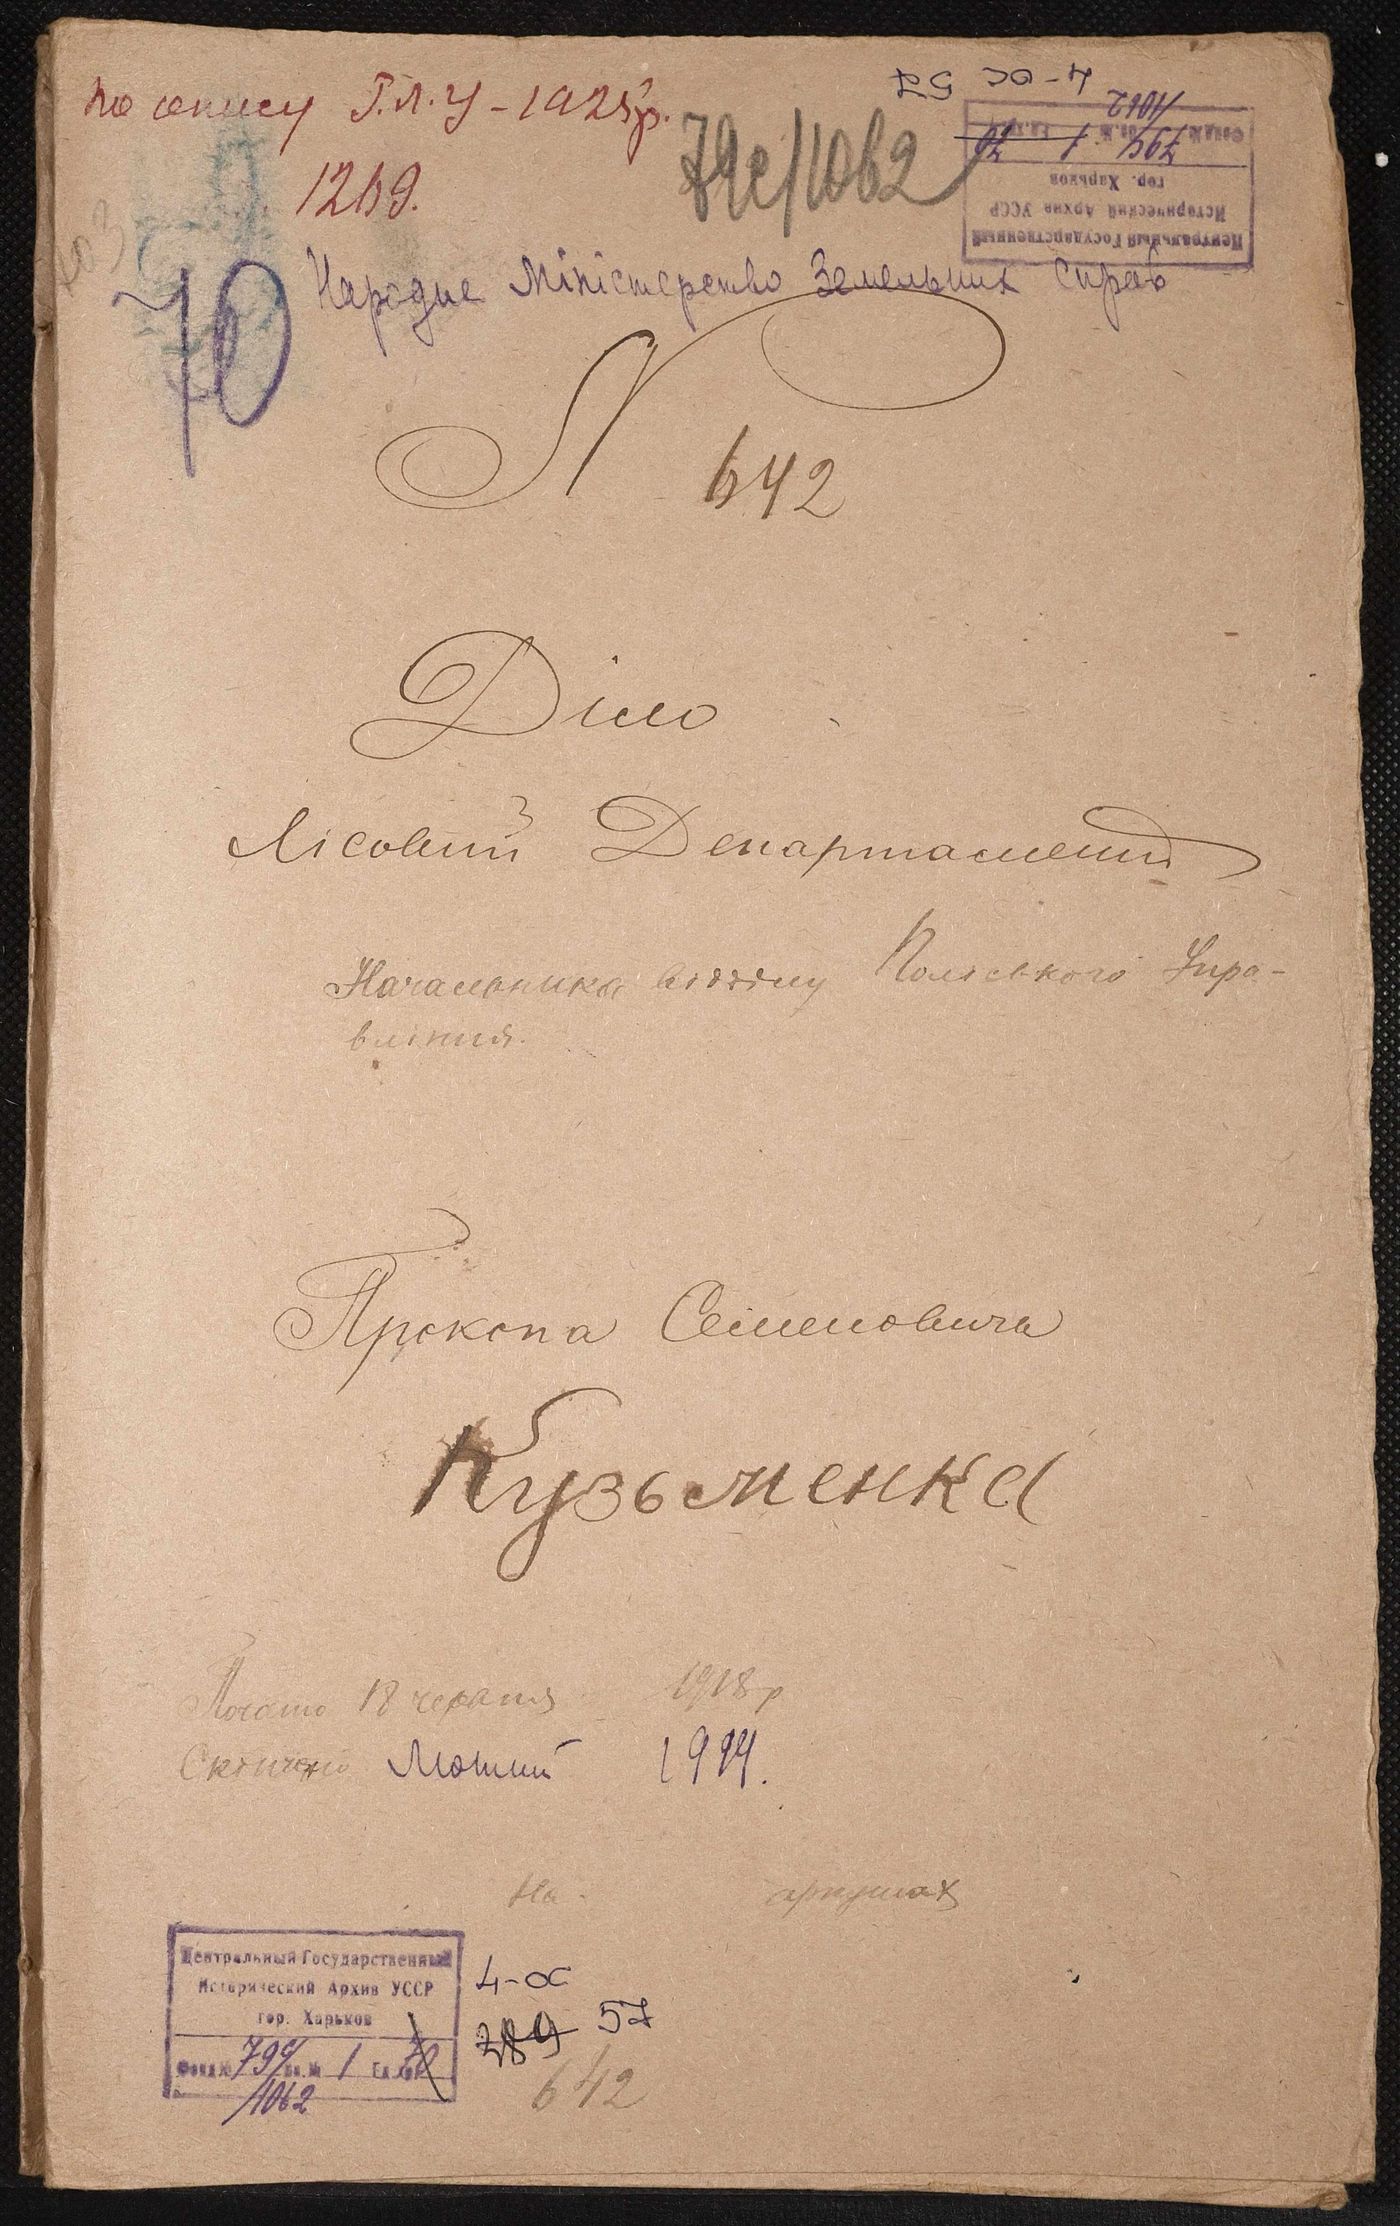 4-ос 57
по опису Г.Л.У - 1925р.
79с/1062
1269.
Центральный Государственный
Исторический Архив УССР
гор. Харьков
Фонд № 79с оп. № 1 Ед. хр. 70
1062
70
Народне Міністерство Земельних Справ
N 642
Діло
Лісовий Департамент
Начальника відділу Поліського Упра-
вління.
Прокопа Семеновича
Кузьменка
Почато 18 червня 1918 р
Скінчено Лютий 1919.
На аркушах
Центральный Государственный
Исторический Архив УССР
гор. Харьков
Фонд № 79с оп. № 1 Ед. хр. 70
1062
4-ос
289 57
642